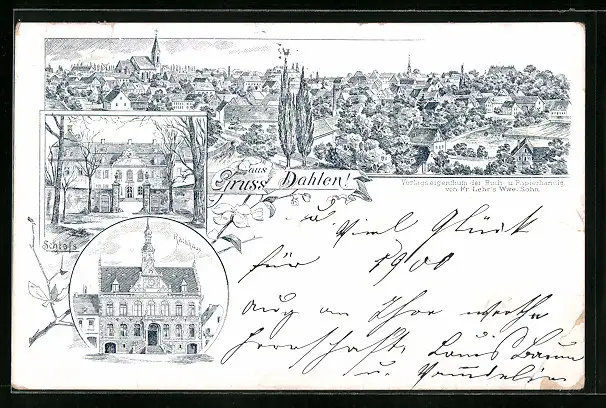 Gruss aus Dahlen!
Verlagseigenthum der Buch- u. Papierhandlg.
von Fr. Lehr's Wwe. Sohn.
Schloſs
Rathhaus
Viel Glück
für 1900
auch an Ihre werthe
Herrschaft. Louis
u.